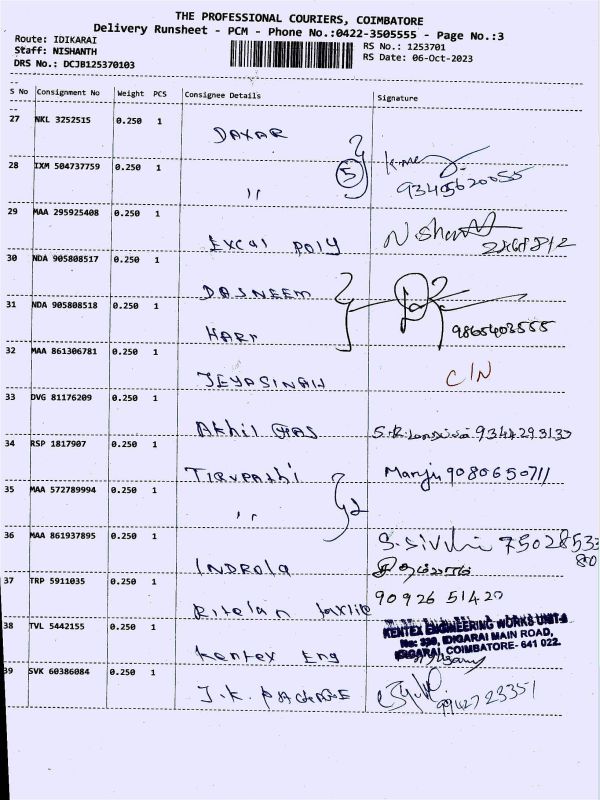 THE PROFESSIONAL COURIERS, COIMBATORE
Delivery Runsheet - PCM - Phone No.:0422-3505555 - Page No.:3
Route: IDIKARAI
RS No.: 1253701
Staff: NISHANTH
RS Date: 06-Oct-2023
DRS No.: DCJB125370103
S No Consignment No Weight PCS Consignee Details Signature
27 NKL 3252515 0.250 1 DAXAR
28 IXM 504737759 0.250 1 " 5 93405620055
29 MAA 295925408 0.250 1 Excal poly Nishanth
30 NDA 905808517 0.250 1 DASNEEM
31 NDA 905808518 0.250 1 HARI 9865403555
32 MAA 861306781 0.250 1 JEYASINGH C/N
33 DVG 81176209 0.250 1 Akhil GAS
34 RSP 1817907 0.250 1 Tirupathi Manju 9080650711
35 MAA 572789994 0.250 1 " 2
36 MAA 861937895 0.250 1 INDROLA
37 TRP 5911035 0.250 1 90926 51420
38 TVL 5442155 0.250 1 Kentex Eng
KENTEX ENGINEERING WORKS UNIT-II
IDIGARAI MAIN ROAD,
IDIGARAI, COIMBATORE- 641 022.
39 SVK 60386084 0.250 1 J.K. PACKAGE 9942723351